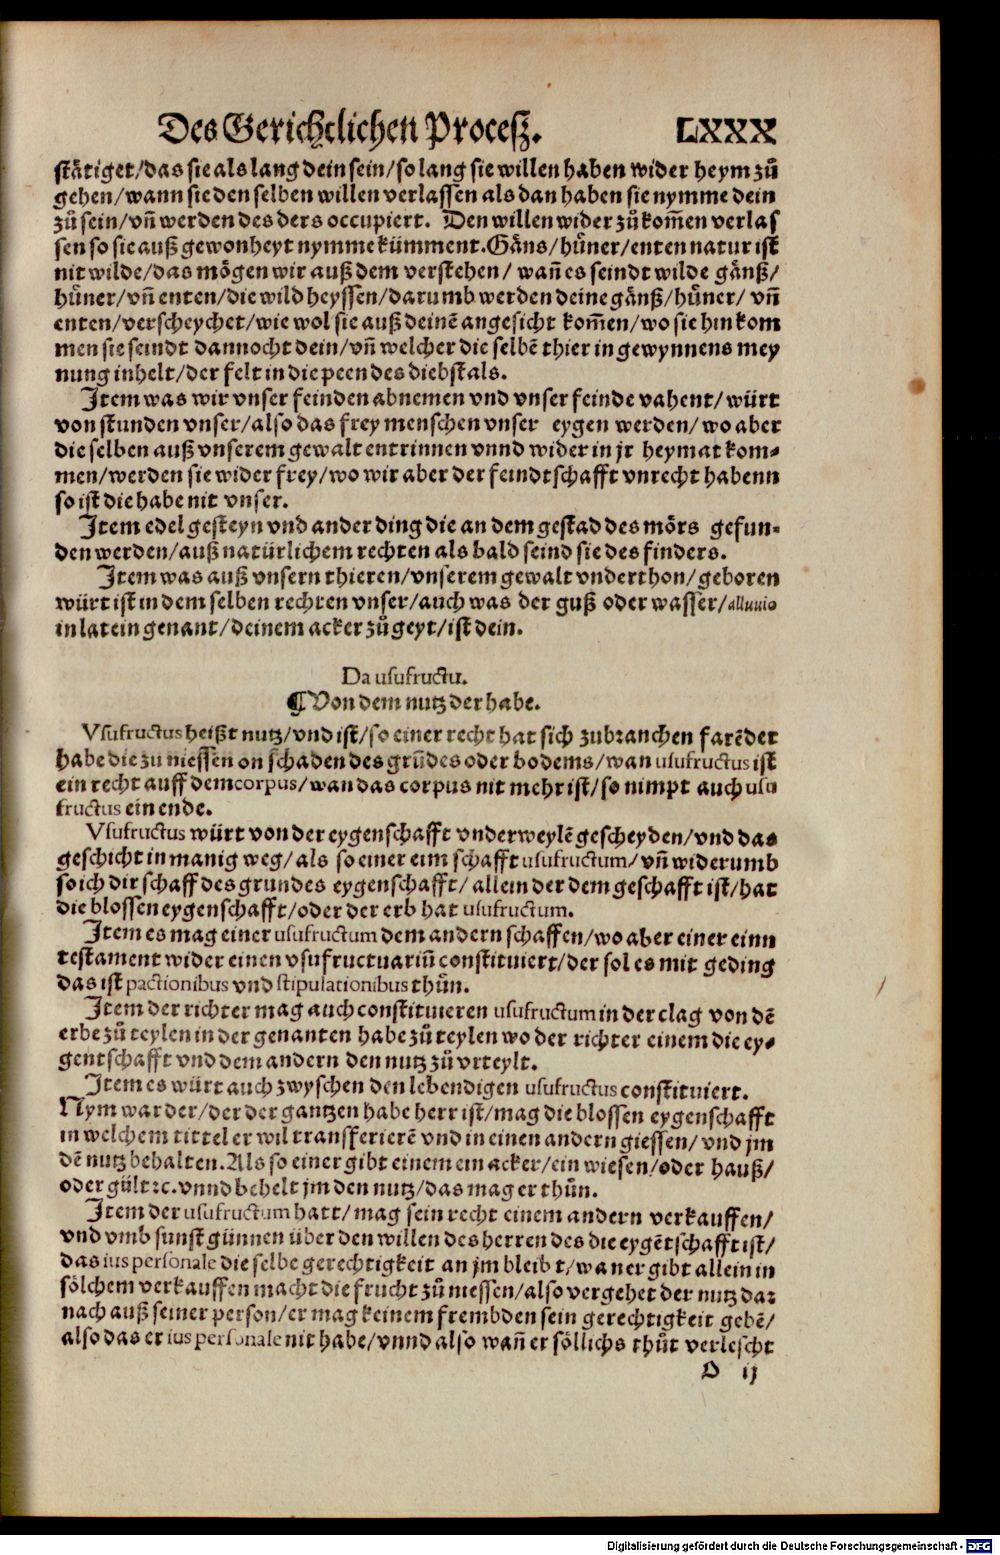 Des Gerichtlichen Procesz. LXXX
stätiget/das sie als lang dein sein/so lang sie willen haben wider heym zů
gehen/wann sie den selben willen verlassen als dan haben sie nymme dein
zů sein/vñ werden des ders occupiert. Den willen wider zů kom̄en verlas
sen so sie auß gewonheyt nymme kümment. Gäns/hůner/enten natur ist
nit wilde/das mögen wir auß dem verstehen/ wañ es seindt wilde gänß/
hůner/vñ enten/die wild heyssen/darumb werden deine gänß/hůner/ vñ
enten/verscheychet/wie wol sie auß deinē angesicht kom̄en/wo sie hin kom
men sie seindt dannocht dein/vñ welcher die selbē thier in gewynnens mey
nung inhelt/der felt in die peen des diebstals.
Item was wir vnser feinden abnemen vnd vnser feinde vahent/würt
von stunden vnser/also das frey menschen vnser eygen werden/wo aber
die selben auß vnserem gewalt entrinnen vnnd wider in jr heymat kom⸗
men/werden sie wider frey/wo wir aber der feindtschafft vnrecht habenn
so ist die habe nit vnser.
Item edel gesteyn vnd ander ding die an dem gestad des mörs gefun⸗
den werden/auß natürlichem rechten als bald seind sie des finders.
Item was auß vnsern thieren/vnserem gewalt vnderthon/geboren
würt ist in dem selben rechten vnser/auch was der guß oder wasser/alluuio
in latein genant/deinem acker zůgeyt/ist dein.
Da usufructu.
¶ Von dem nutz der habe.
Vsufructus heißt nutz/vnd ist/so einer recht hat sich zubrauchen farēder
habe die zu niessen on schaden des grūdes oder bodems/wan usufructus ist
ein recht auff dem corpus/wan das corpus nit mehr ist/so nimpt auch usu
fructus ein ende.
Vsufructus würt von der eygenschafft vnderweylē gescheyden/vnd das
geschicht in manig weg/als so einer eim schafft usufructum/vñ widerumb
so ich dir schaff des grundes eygenschafft/ allein der dem geschafft ist/hat
die blossen eygenschafft/oder der erb hat usufructum.
Item es mag einer usufructum dem andern schaffen/wo aber einer einn
testament wider einen vsufructuariū constituiert/der sol es mit geding
das ist pactionibus vnd stipulationibus thůn.
Item der richter mag auch constituieren usufructum in der clag von dē
erbe zů teylen in der genanten habe zů teylen wo der richter einem die ey⸗
gentschafft vnd dem andern den nutz zů vrteylt.
Item es würt auch zwyschen den lebendigen usufructus constituiert.
Nym war der/der der gantzen habe herr ist/mag die blossen eygenschafft
in welchem tittel er wil transferierē vnd in einen andern giessen/vnd jm
dē nutz behalten. Als so einer gibt einem ein acker/ein wiesen/oder hauß/
oder gült ꝛc. vnnd behelt jm den nutz/das mag er thůn.
Item der usufructum hatt/mag sein recht einem andern verkauffen/
vnd vmb sunst günnen über den willen des herren des die eygētschafft ist/
das ius personale die selbe gerechtigkeit an jm bleibt/wan er gibt allein in
sölchem verkauffen macht die frucht zů niessen/also vergehet der nutz dar
nach auß seiner person/er mag keinem frembden sein gerechtigkeit gebē/
also das er ius personale nit habe/vnnd also wañ er söllichs thůt verlescht
O ij
Digitalisierung gefördert durch die Deutsche Forschungsgemeinschaft - DFG